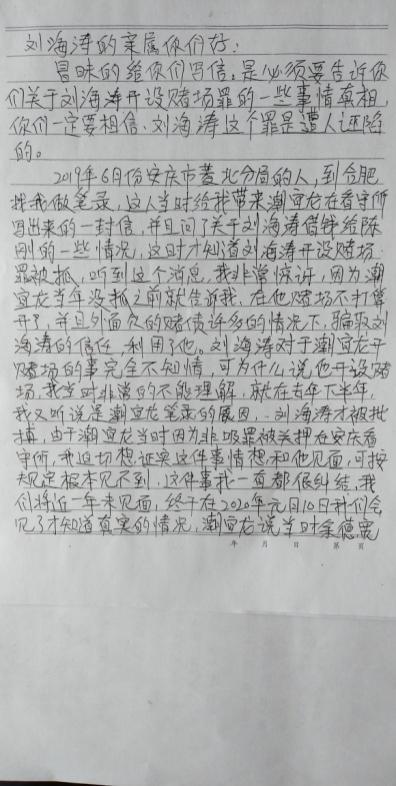 刘海涛的亲属你们好：
冒昧的给你们写信。是必须要告诉你
们关于刘海涛开设赌场罪的一些事情真相，
你们一定要相信、刘海涛这个罪是遭人诬陷
的。
2019年6月份安庆市菱北分局的人，到合肥
找我做笔录，这人当时给我带来潮宜龙在看守所
写出来的一封信，并且问了关于刘海涛借钱给陈
刚的一些情况，这时才知道刘海涛开设赌场
罪被抓，听到这个消息，我非常惊讶，因为潮
宜龙当年没抓之前就告诉我，在他赌场不打算
开了，并且外面欠的赌债许多的情况下，骗取刘
海涛的信任 利用了他。刘海涛对于潮宜龙开
赌场的事完全不知情，可为什么说他开设赌
场，我当时非常的不能理解，就在去年下半年，
我又听说是潮宜龙笔录的原因，刘海涛才被批
捕，由于潮宜龙当时因为非吸罪被关押在安庆看
守所，我迫切想证实这件事情想和他见面，可按
规定根本见不到，这件事我一直都很纠结，我
们将近一年未见面，终于在2020年元月10日我们会
见了才知道真实的情况，潮宜龙说当时余德
年 月 日 第 页